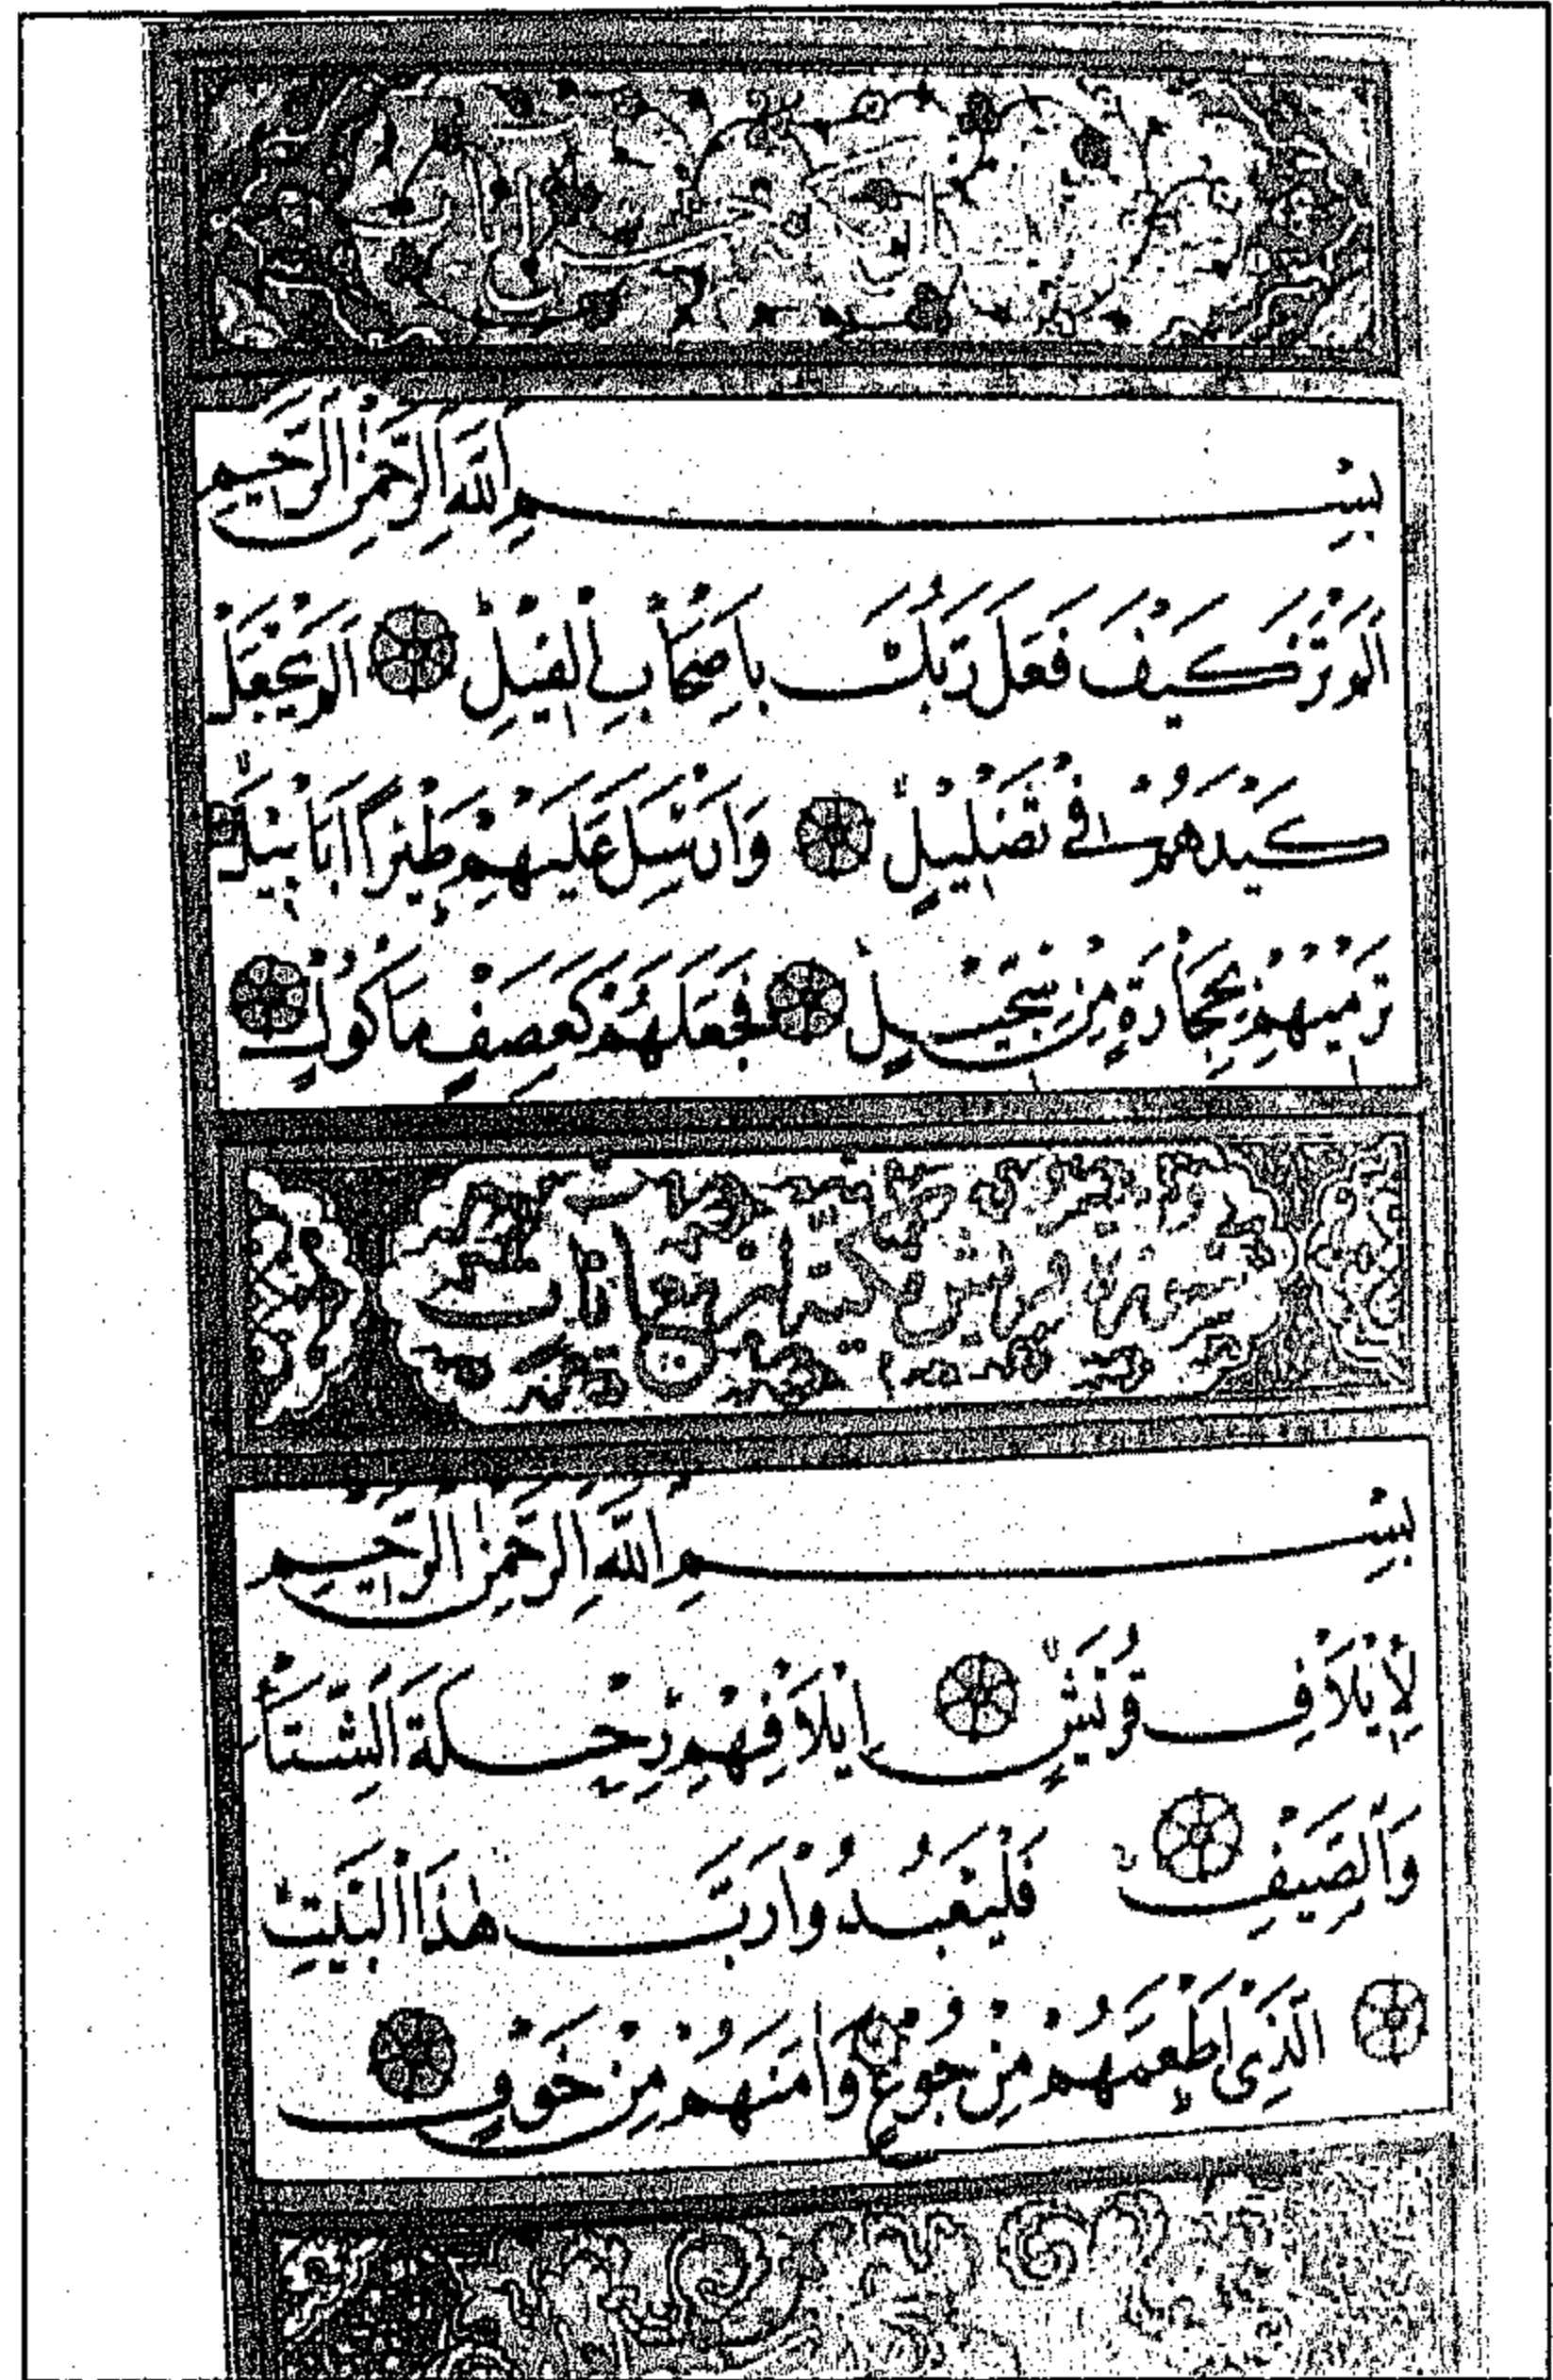 بِسْمِ اللَّهِ الرَّحْمٰنِ الرَّحِيمِ
اَلَمْ تَرَ كَيْفَ فَعَلَ رَبُّكَ بِاَصْحَابِ الْفِيلِ اَلَمْ يَجْعَلْ
كَيْدَهُمْ فِي تَضْلِيلٍ وَاَرْسَلَ عَلَيْهِمْ طَيْرًا اَبَابِيلَ
تَرْمِيهِمْ بِحِجَارَةٍ مِنْ سِجِّيلٍ فَجَعَلَهُمْ كَعَصْفٍ مَأْكُولٍ
سورة قريش آيات
بِسْمِ اللَّهِ الرَّحْمٰنِ الرَّحِيمِ
لِاِيلَافِ قُرَيْشٍ اِيلَافِهِمْ رِحْلَةَ الشِّتَاءِ
وَالصَّيْفِ فَلْيَعْبُدُوا رَبَّ هٰذَا الْبَيْتِ
الَّذِي اَطْعَمَهُمْ مِنْ جُوعٍ وَاٰمَنَهُمْ مِنْ خَوْفٍ